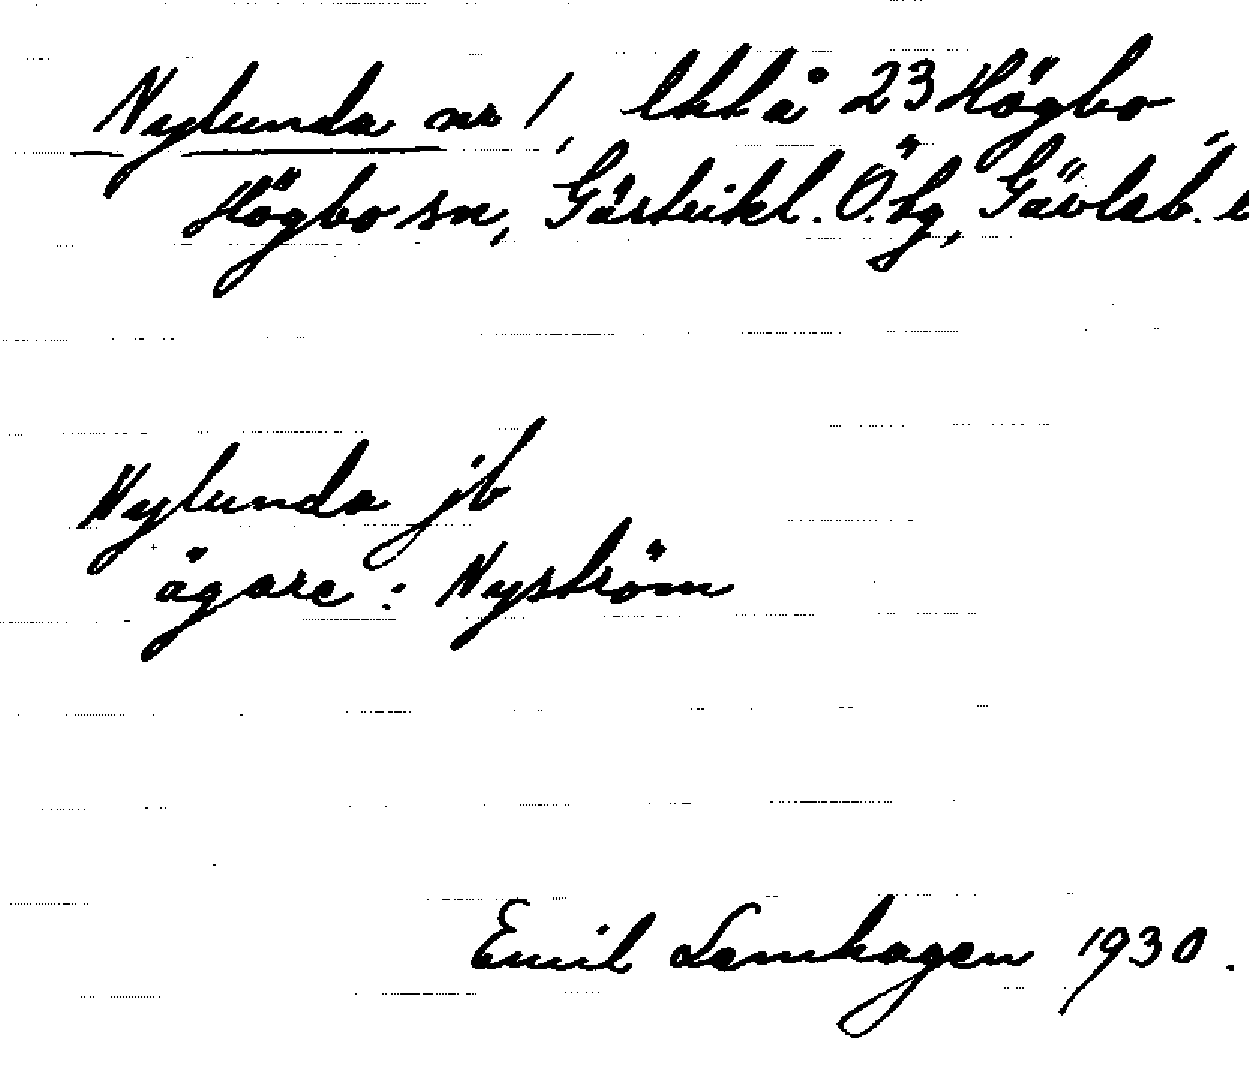 Nylunda nr 1, lht å 23 Högbo
Högbo sn, Gästrikl. Ö. tg, Gävleb. l
Nylunda jb
ägare: Nyström
Emil Lamhagen 1930.